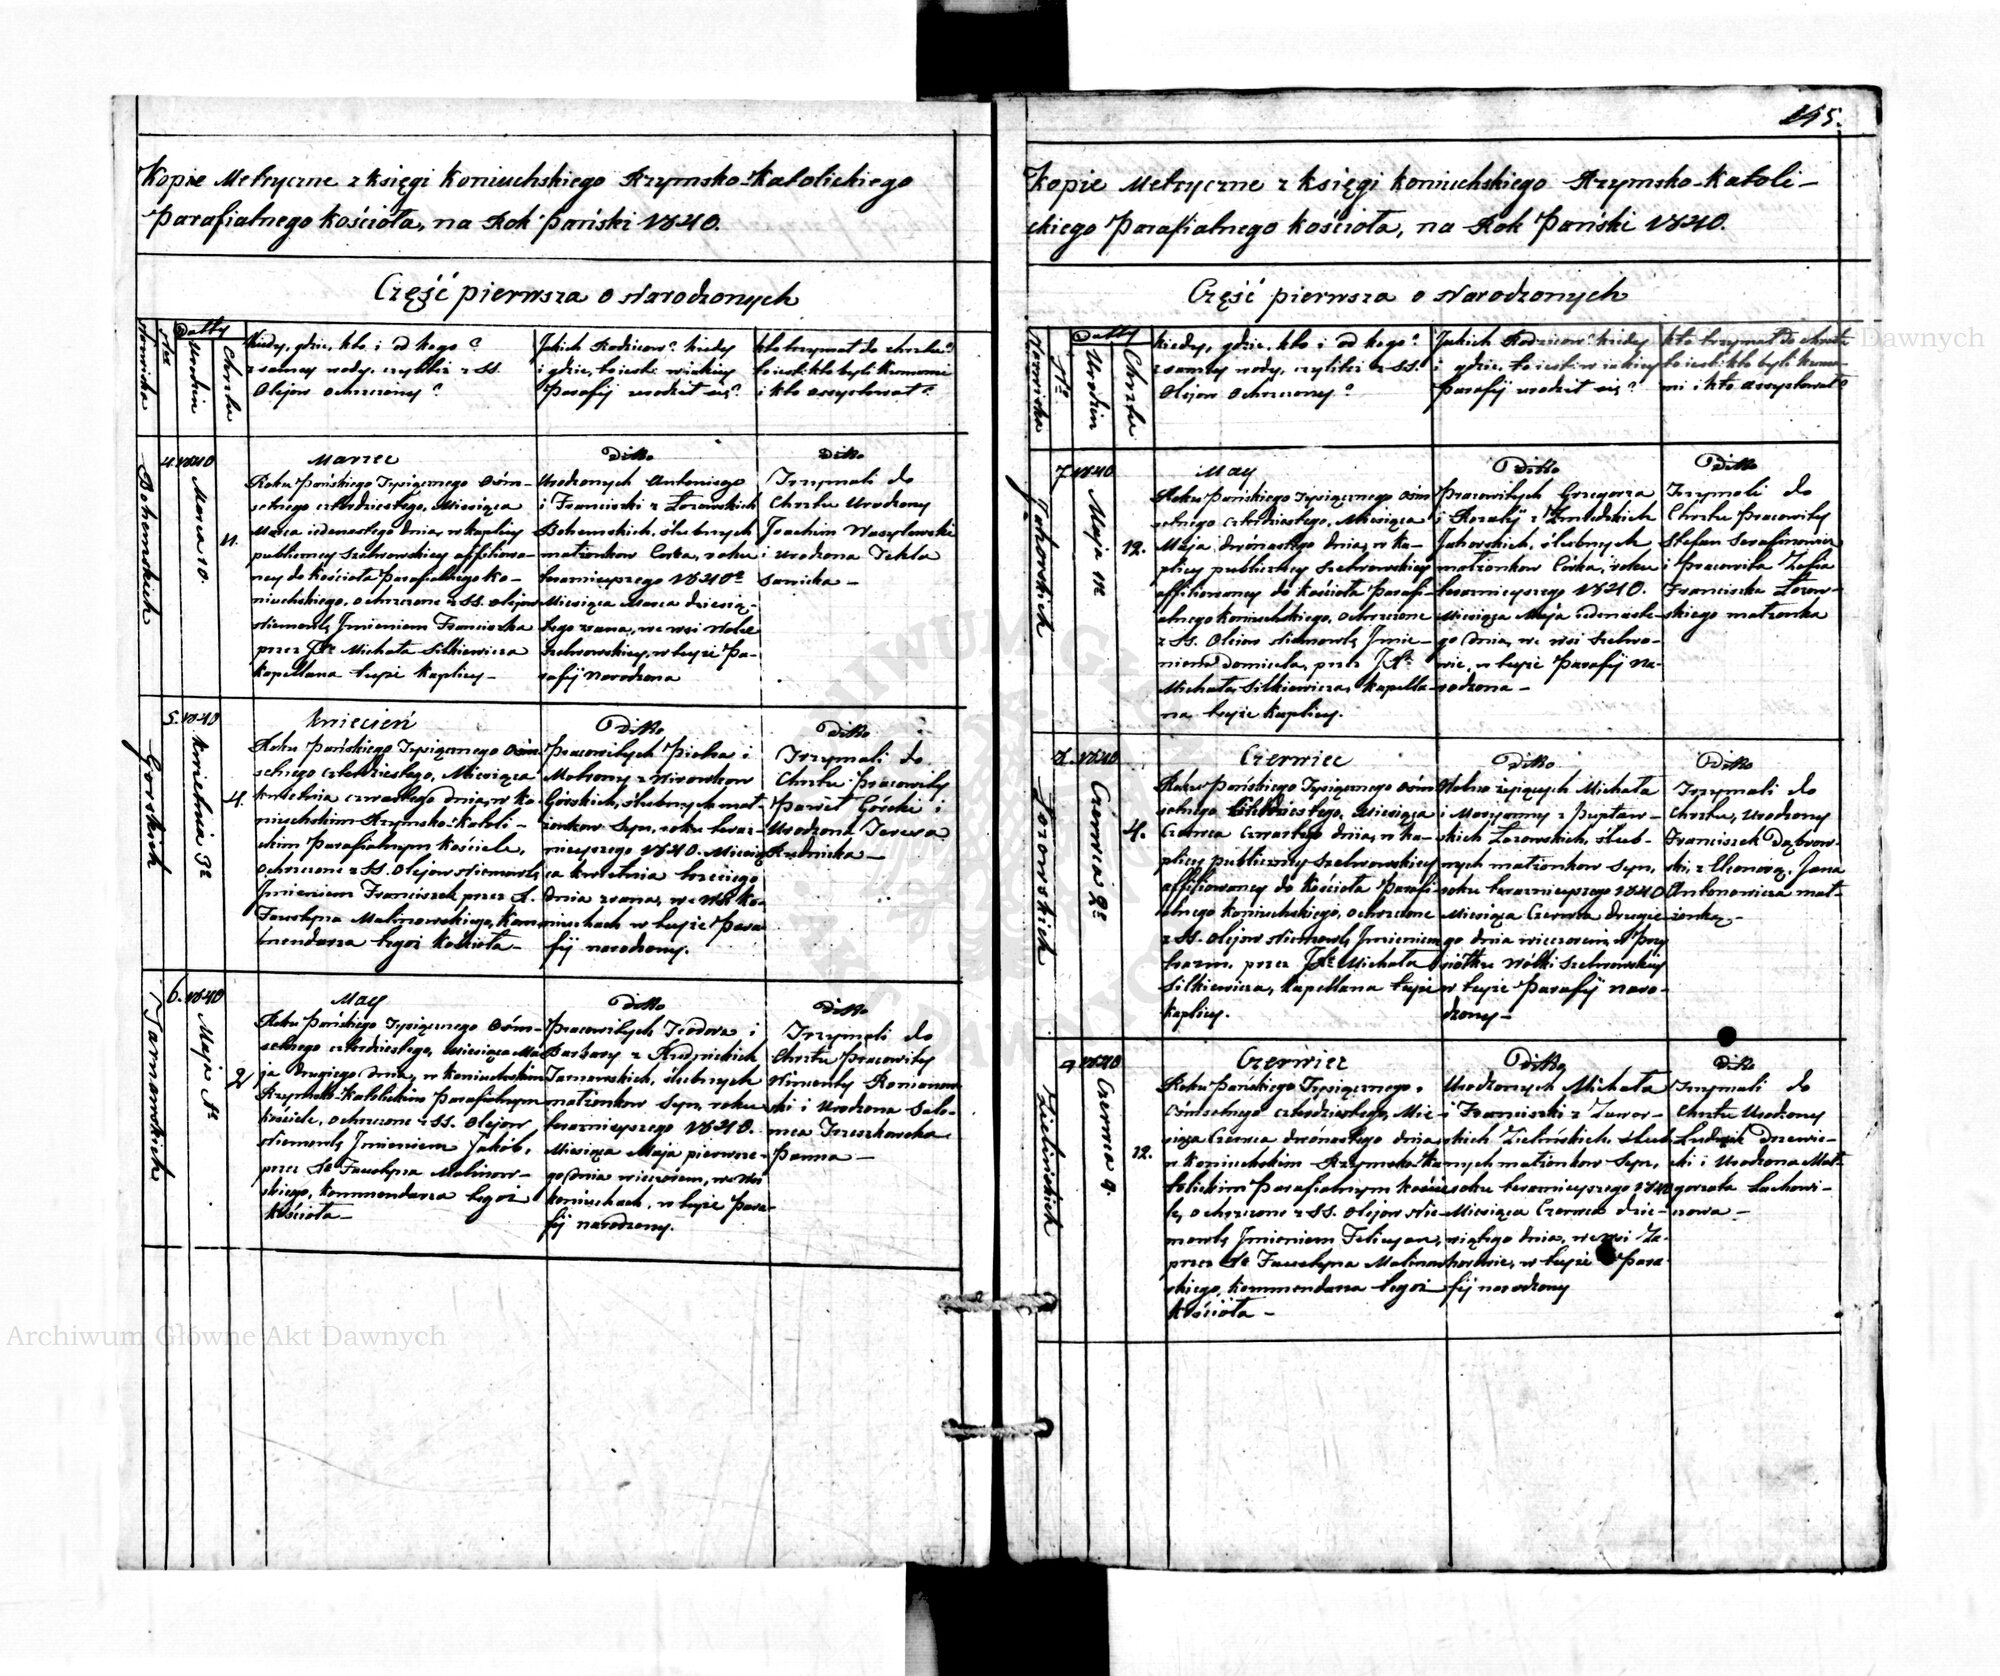 145.
Kopie Metryczne z księgi Koniuchskiego Rzymsko-Katolickiego
Parafialnego Kościoła, na Rok Pański 1840.
Część pierwsza o Narodzonych
Nazwiska
Datty
Urodzin
Chrztu
Kiedy, gdzie, kto i od kogo?
z samey wody, czyliż z SS.
Olejow ochrzczony?
Jakich Rodzicow? kiedy
i gdzie, to iest: w iakiey
Parafij urodził się?
Kto trzymał do chrztu?
to iest: kto byli Kumami
i kto assystował?
Bohemskich
4.
1840
Marca 10.
11.
Marzec
Roku Pańskiego Tysiącznego Ośm-
setnego czterdziestego, Miesiąca
Marca iedenastego dnia, w kaplicy
publiczney Szelwowskiey affiliowa-
ney do Kościoła Parafialnego Ko-
niuchskiego, ochrzczone z SS. olejow
Niemowlę Jmieniem Franciszka
przez JX. Michała Silkiewicza
Kapellana teyże Kaplicy -
Ditto
Urodzonych Antoniego
i Franciszki z Łozowskich
Bohemskich, ślubnych
małżonkow Corka, roku
teraznieyszego 1840o
Miesiąca Marca dziesią-
tego zrana, we wsi Wolce
Szelwowskiey, w teyże Pa-
rafij narodzona
Ditto
Trzymali do
Chrztu Urodzony
Joachim Wasylewski
i Urodzona Tekla
Sawicka -
Gorskich
5.
1840
Kwietnia 3o
4.
Kwiecień
Roku Pańskiego Tysiącznego ośm
setnego czterdziestego, Miesiąca
Kwietnia czwartego dnia, w Ko
niuchskim Rzymsko-Katoli-
ckim Parafialnym Kościele,
ochrzczone z SS. Olejow Niemowlę
Jmieniem Franciszek przez X.
Faustyna Malinowskiego, Kom
mendarza tegoż Kościoła -
Ditto
Pracowitych Piotra i
Matrony z
Górskich, ślubnych mał-
żonkow Syn, roku teraz-
nieyszego 1840. Miesią
ca Kwietnia trzeciego
dnia zrana, we Wsi Ko-
niuchach w teyże Para
fij narodzony.
Ditto
Trzymali do
Chrztu Pracowity
Paweł Górski i
Urodzona Teresa
Rudnicka -
Tarnowskich
6.
1840
Maja 1o
2
May
Roku Pańskiego Tysiącznego Ośm-
setnego czterdziestego, Miesiąca Ma
ja drugiego dnia, w Koniuchskim
Rzymsko-Katolickim Parafialnym
Kościele, ochrzczone z SS. Olejow
Niemowlę Jmieniem Jakób,
przez X. Faustyna Malinow-
skiego, Kommendarza tegoż
Kościoła -
Ditto
Pracowitych Teodora i
Barbary z Rudnickich
Tarnowskich, ślubnych
małżonkow Syn, roku
teraznieyszego 1840.
Miesiąca Maja pierwsze-
go dnia wieczorem, we Wsi
Koniuchach, w teyże Para-
fij narodzony.
Ditto
Trzymali do
Chrztu Pracowity
i Urodzona Salo-
mea
Panna -
Kopie Metryczne z Księgi Koniuchskiego Rzymsko-Katoli-
ckiego Parafialnego Kościoła, na Rok Pański 1840.
Część pierwsza o Narodzonych
Nazwiska
No
Datty
Urodzin
Chrztu
Kiedy, gdzie, kto i od kogo?
z samey wody, czyliż z SS.
Olejow ochrzczony?
Jakich Rodzicow? kiedy
i gdzie, to iest: w iakiey
Parafij urodził się?
Kto trzymał do chrztu
to iest: kto byli Kuma-
mi i kto assystował?
Jahowskich
7.
1840
Maja 11o
12.
May
Roku Pańskiego Tysiącznego Ośm
setnego czterdziestego, Miesiąca
Maja dwónastego dnia, w Ka-
plicy publiczney Szelwowskiey
affiliowaney do Kościoła Parafi-
alnego Koniuchskiego, ochrzczone
z SS. Olejow Niemowlę Jmie-
niem Domicela, przez JX.
Michała Silkiewicza, Kapella-
na teyże Kaplicy.
Ditto
Pracowitych Grzegorza
i Rozalij z Żmudzkich
Jahowskich, ślubnych
małżonkow Córka, roku
teraznieyszego 1840.
Miesiąca Maja iedenaste-
go dnia, we wsi Szelwo-
wie, w teyże Parafij na-
rodzona -
Ditto
Trzymali do
Chrztu Pracowity
Stefan Serafinowicz
i Pracowita Zofia
Franciszka Łozow-
skiego małżonka
Łozowskich
8.
1840
Czerwca 2o
4.
Czerwiec
Roku Pańskiego Tysiącznego ośm
setnego czterdziestego, Miesiąca
Czerwca czwartego dnia, w Ka-
plicy publiczney Szelwowskiey
affiliowaney do Kościoła Parafi-
alnego Koniuchskiego, ochrzczone
z SS. Olejow Niemowlę Jmieniem
przez JX. Michała
Silkiewicza, Kapellana teyże
Kaplicy.
Ditto
Wolno żyiących Michała
i Maryanny z
skich Łozowskich, ślub-
nych małżonkow Syn,
roku teraznieyszego 1840
Miesiąca Czerwca drugie
go dnia wieczorem, w Przy
siółku Wólki Szelwowskiey
w teyże Parafij naro-
dzony -
Ditto
Trzymali do
Chrztu, Urodzony
Franciszek Dąbrow-
ski, z Eleonorą, Jana
Antonowicza mał-
żonką, -
Zielińskich
9
1840
Czerwca 9.
12.
Czerwiec
Roku Pańskiego Tysiącznego
Ośmsetnego czterdziestego, Mie-
siąca Czerwca dwónastego dnia
w Koniuchskim Rzymsko-Ka
tolickim Parafialnym Kościé
le, ochrzczone z SS. Olejow Nie-
mowlę Jmieniem Felicyan,
przez X. Faustyna Malinow
skiego, Kommendarza tegoż
Kościoła -
Ditto
Urodzonych Michała
i Franciszki z Zawor-
skich Zielińskich, ślub
nych małżonkow Syn,
roku teraznieyszego 1840
Miesiąca Czerwca dzie-
wiątego dnia, we wsi Za-
horowie, w teyże Para-
fij narodzony
Ditto
Trzymali do
Chrztu Urodzony
Ludwik Drzewie-
cki i Urodzona Mał-
gorzata Lachowi-
czowa -
Archiwum Główne Akt Dawnych